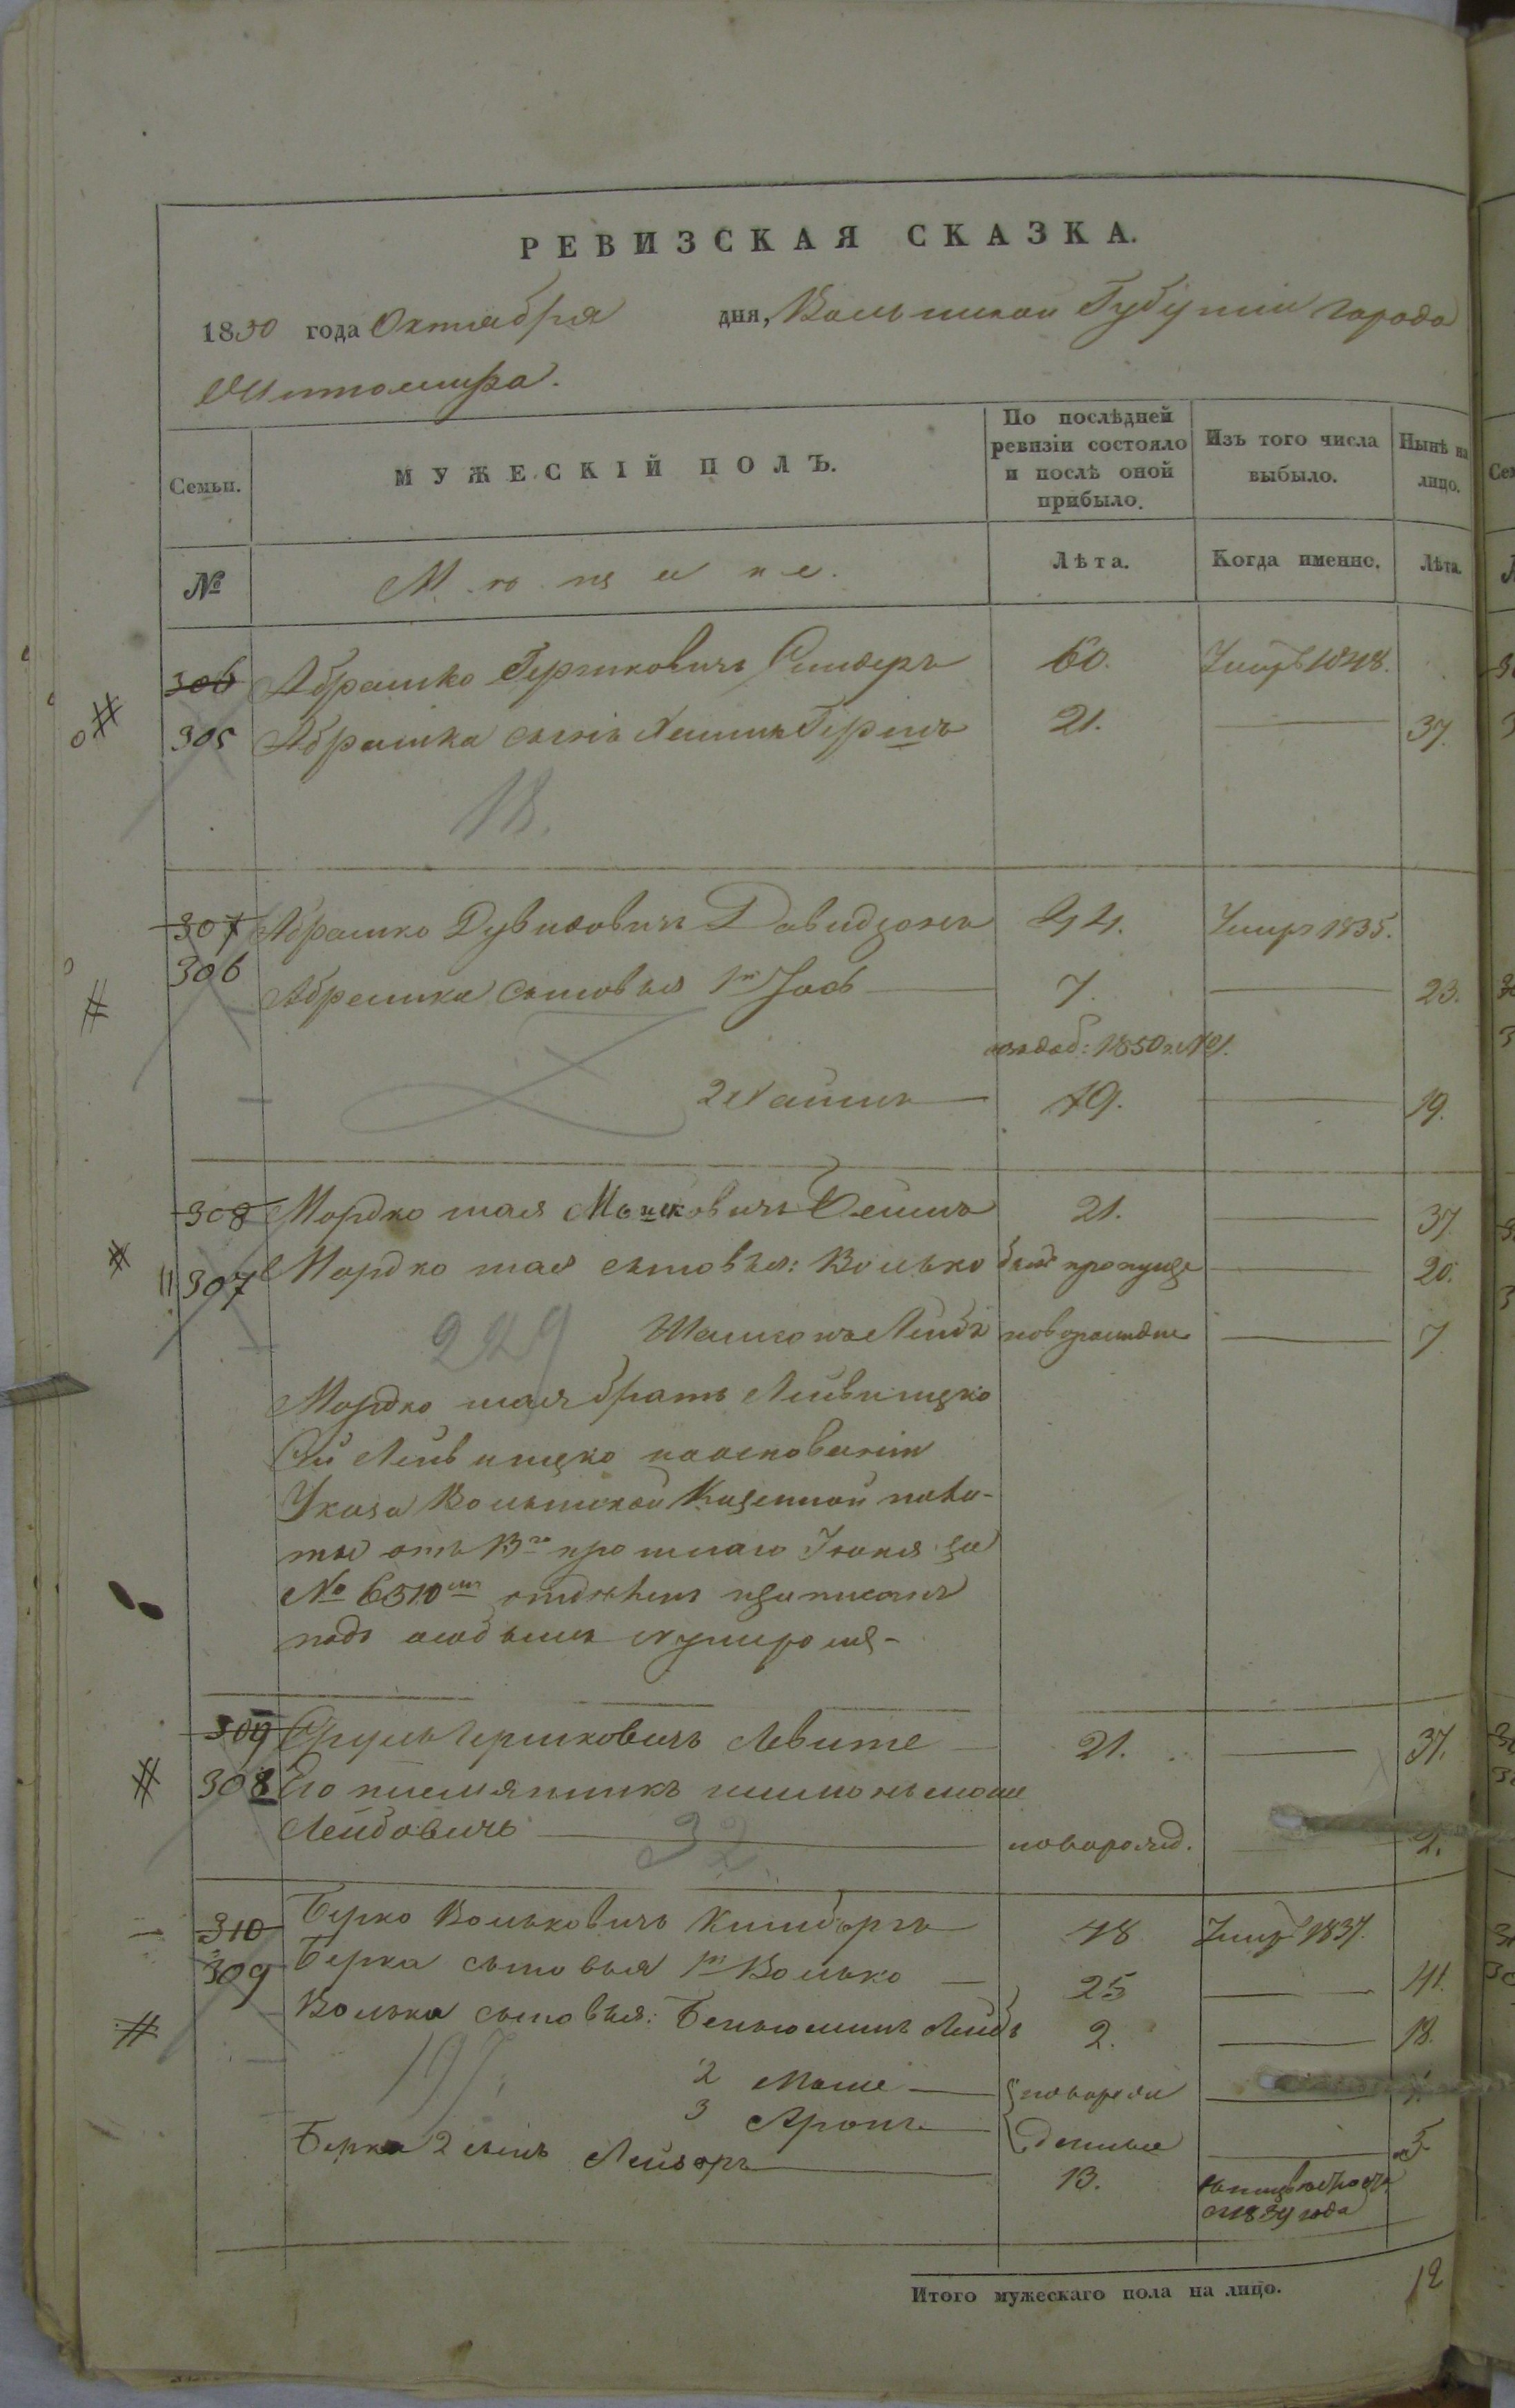 РЕВИЗСКАЯ СКАЗКА.
1850 года Октября дня, Волынской Губерніи города
Житомира.
Семьи. МУЖЕСКІЙ ПОЛЪ. По послѣдней ревизіи состояло и послѣ оной прибыло. Изъ того числа выбыло. Нынѣ на лицо.
№ Мѣщане. Лѣта. Когда именно. Лѣта.
306 Абрамко Гершковичъ 60. Умеръ 1848.
305 Абрамка сынъ Хаимъ Гершъ 21. 37.
18.
307 Абрамко Дувидовичъ Давидзонъ 44. Умеръ 1835.
306 Абрамка сыновья 1й Іось 7. 23.
1850 №1.
2 Хаимъ 19. 19.
308 Мордко шая Мошковичъ 21. 37
307 Мордко шая сыновья: Волько былъ пропуще 20.
229 Лейба новорожден 7
Мордко шая братъ Лейвицко
Сей Лейвицко на основаніи
Указа Волынской Казенной пала-
ты отъ 13го прошлаго Іюня за
№ 6510мъ отдѣленъ и записанъ
подъ особымъ
309 Сруль Гершковичъ Левите 21. 37.
308 Его племянникъ шимонъ моше
Лейбовичъ новорожд. 2.
32.
310 Берко Вольковичъ 48 Умеръ 1837.
309 Берка сыновья 1й Волько 25 41.
Волька сыновья: Беньюминъ Лейбъ 2. 18.
197.
2 Моше новорож
3 Аронъ денные 5
Берка 2 сынъ Лейзоръ 13. 1839 года
Итого мужескаго пола на лицо. 12